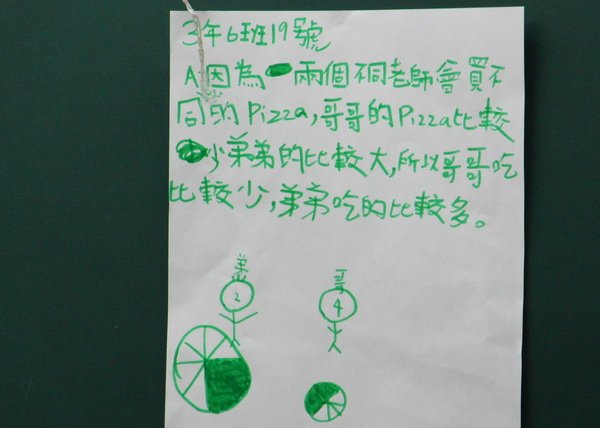 3年6班19號
A因為兩個不同老師會買不
同的Pizza,哥哥的Pizza比較
少弟弟的比較大,所以哥哥吃
比較少,弟弟吃的比較多。
弟 哥
2 4